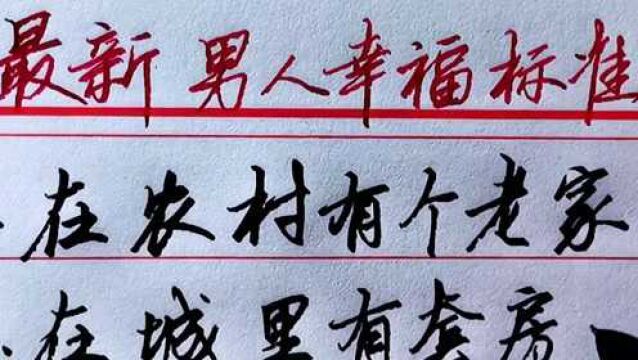 最新男人幸福标准
在农村有个老家
在城里有套房